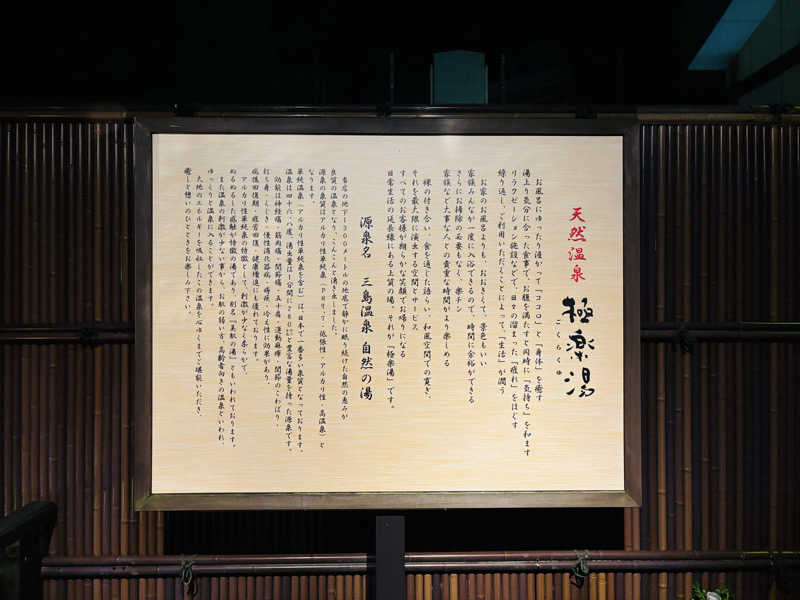 天然温泉
極楽湯
ごくらくゆ
お風呂にゆったり浸かって「ココロ」と「身体」を癒す
湯上り気分に合った食事で、お腹を満たすと同時に「気持ち」を和ます
リラクゼーション施設などで、日々の溜まった「疲れ」をほぐす
繰り返し、ご利用いただくことによって、「生活」が潤う
お家のお風呂よりも、おおきくて、景色もいい
家族みんなが一度に入浴できるので、時間に余裕ができる
さらにお掃除の必要もなく、楽チン
家族など大事な人との貴重な時間がより楽しめる
裸の付き合い、食を通じた語らい、和風空間での寛ぎ、
それを最大限に演出する空間とサービス
すべてのお客様が朗らかな笑顔でお帰りになる
日常生活の延長線にある上質の湯、それが「極楽湯」です。
源泉名 三島温泉 自然の湯
当店の地下1300メートルの地底で静かに眠り続けた自然の恵みが
良質の温泉となり、こんこんと湧き出しました。
源泉の泉質はアルカリ性単純泉(PH9.7・低張性・アルカリ性・高温泉)と
なります。
単純温泉(アルカリ性単純泉を含む)は、日本で一番多い泉質となっております。
温泉は四十六・八度、湧出量は1分間に260ℓと豊富な湯量を持った源泉です。
効能は神経痛・筋肉痛・関節痛・五十肩・運動麻痺・関節のこわばり・
打ち身・くじき・慢性消化器病・痔疾・冷え性に効果があり、
病後回復期・疲労回復・健康増進にも優れております。
アルカリ性単純泉の特徴として、刺激が少なく柔らかで、
ぬるぬるした感触が特徴の湯であり、別名「美肌の湯」ともいわれております。
また温泉の刺激が少ない事から、お肌の弱い方、高齢者向きの温泉といわれ、
ゆっくりと温まることができます。
大地のエネルギーを吸収したこの温泉を心ゆくまでご堪能いただき、
癒しと憩いのひとときをお楽しみ下さい。